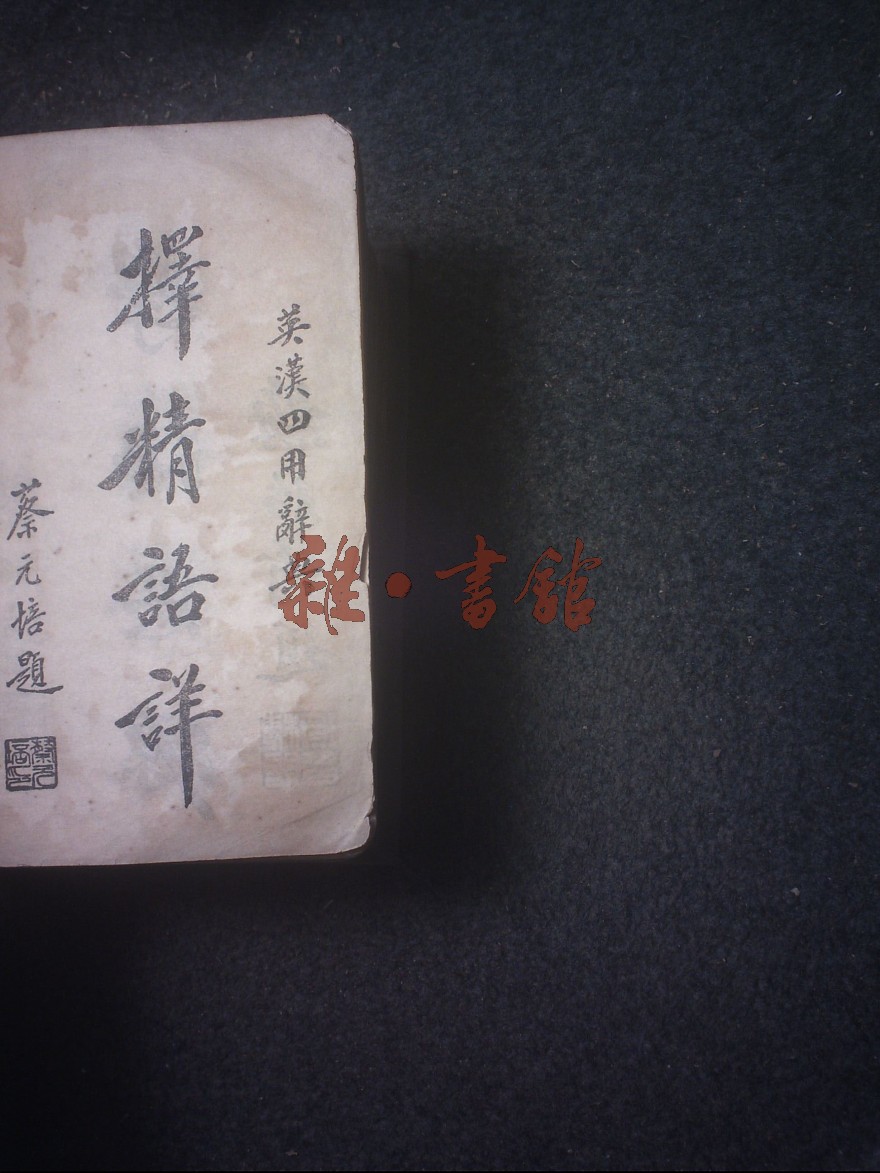 英漢四用辭典
擇精語詳
蔡元培題
雜·書館